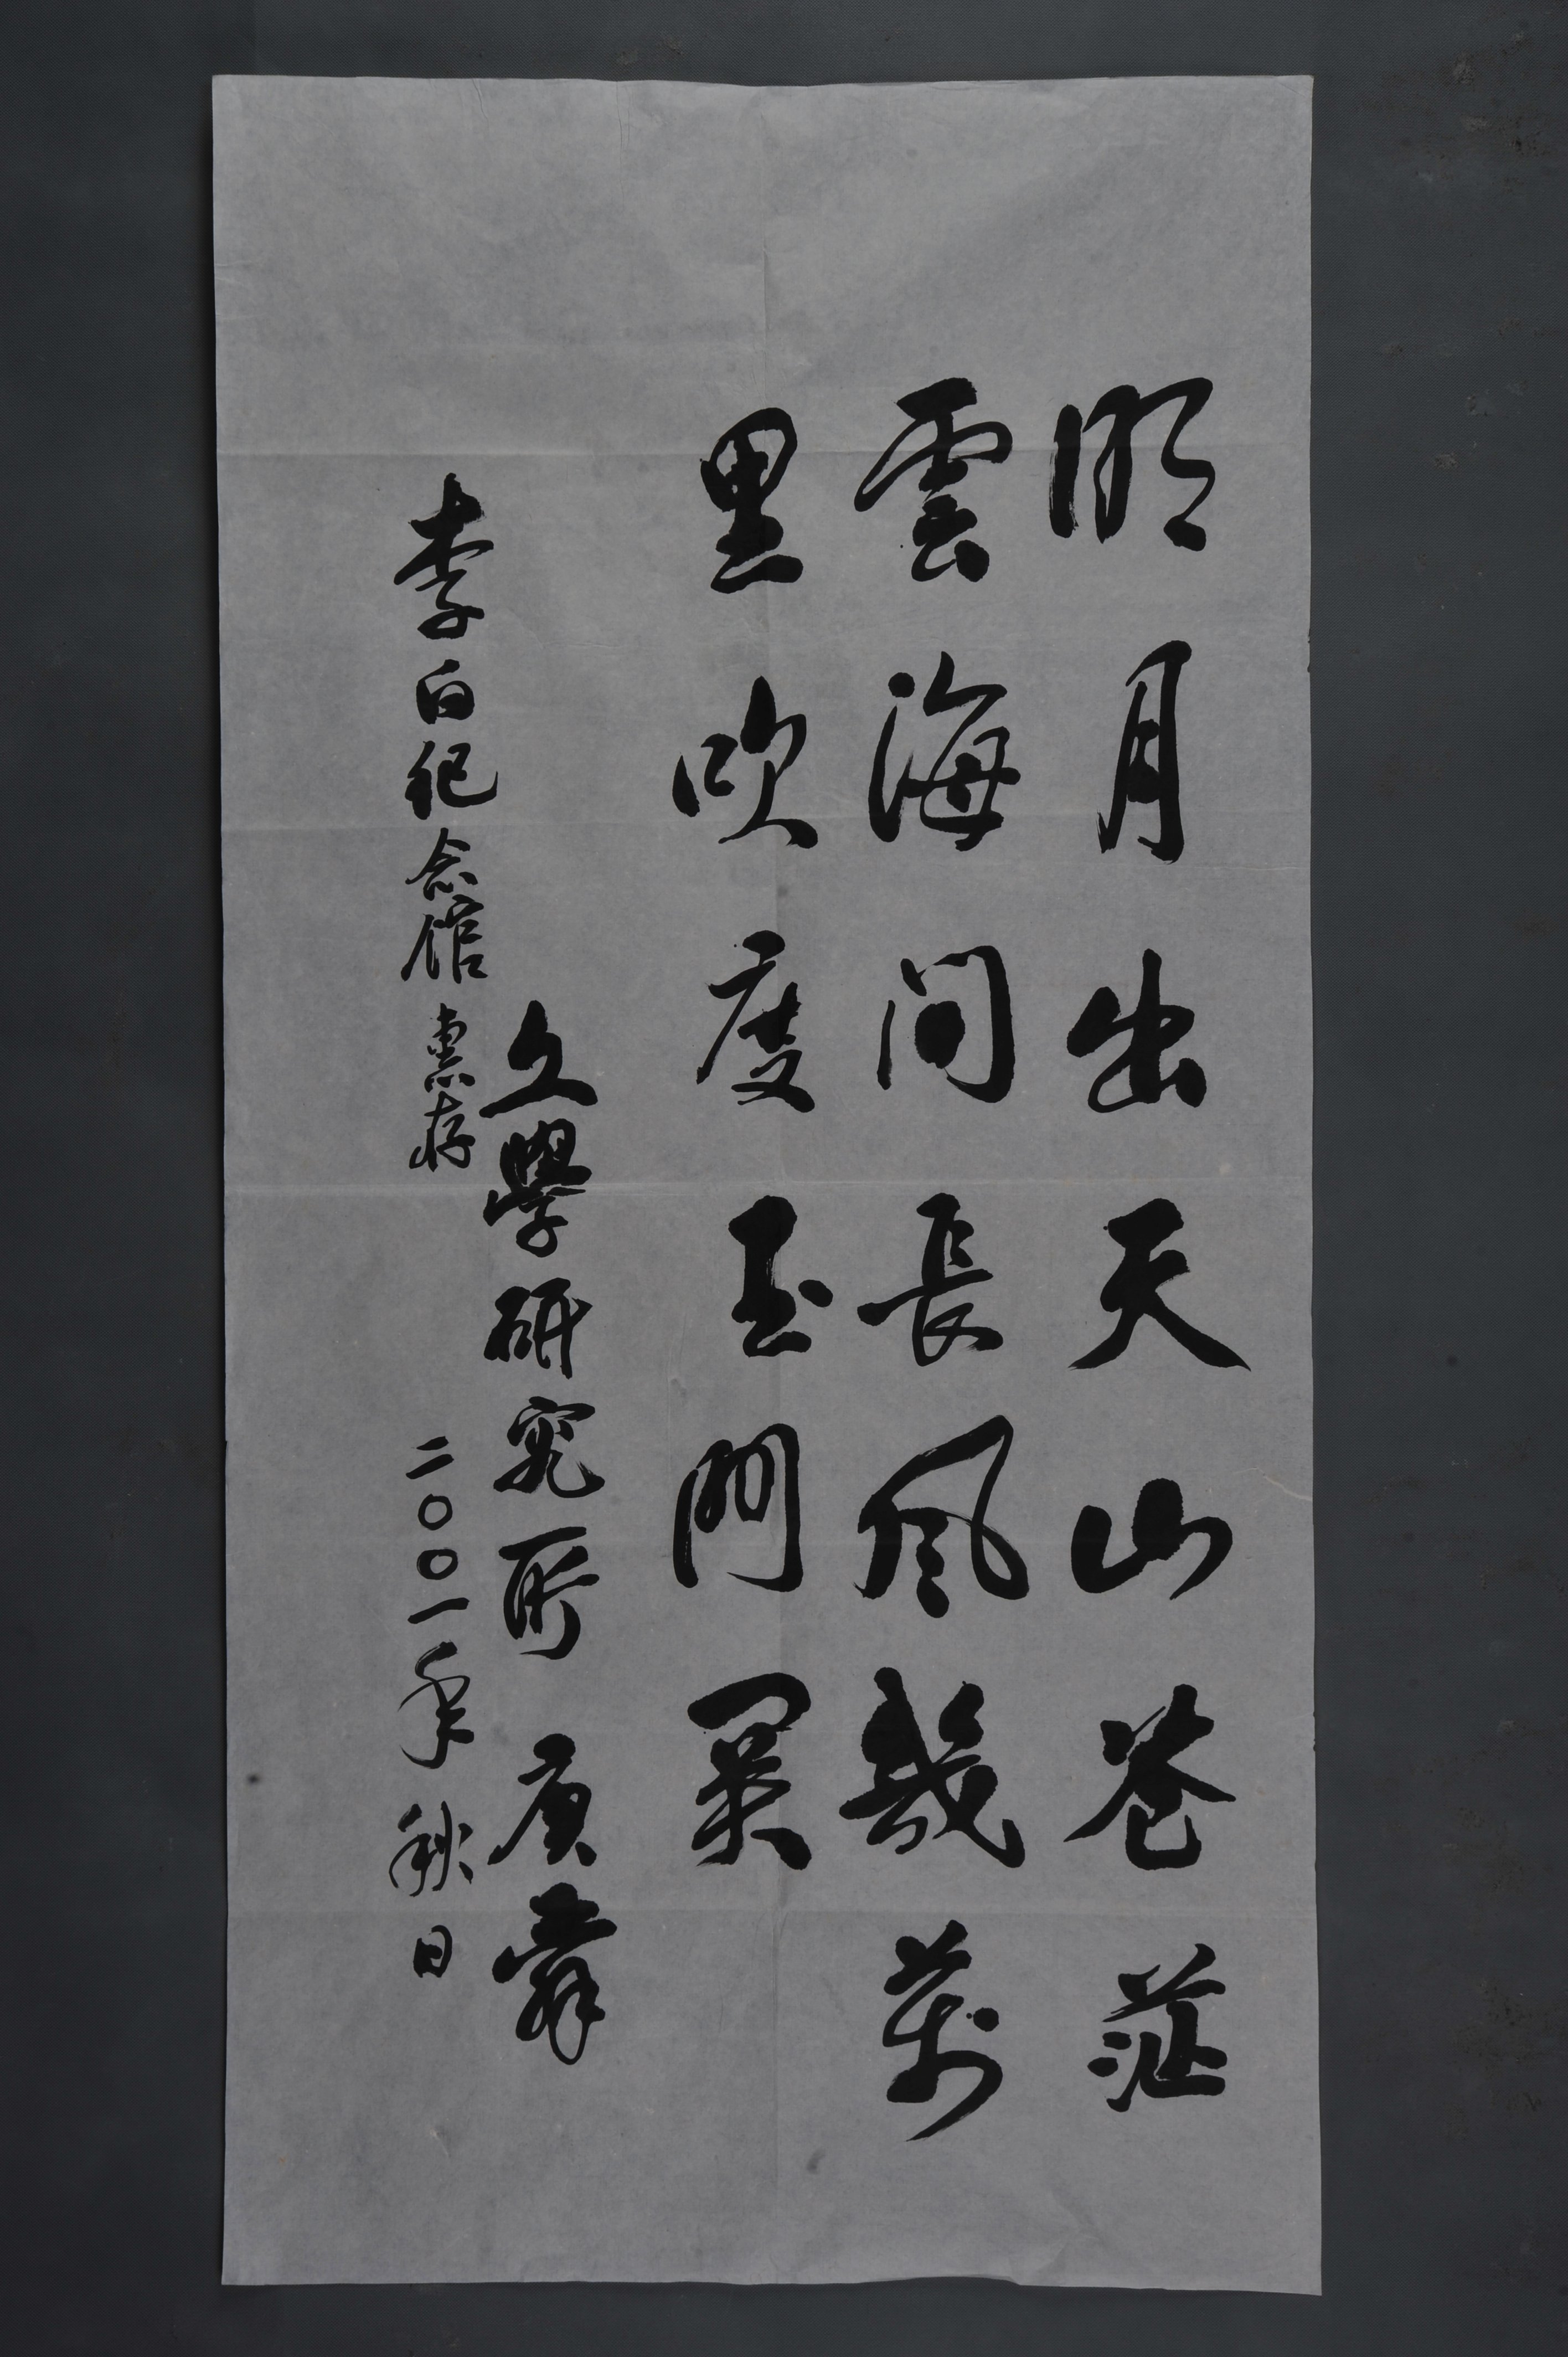 明月出天山苍茫
雲海间長風幾萬
里吹度玉門関
文學研究所 庚舜
李白纪念馆 惠存 二〇〇一年秋日